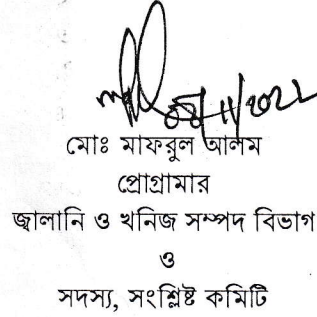 মোঃ মাফরুল আলম
প্রোগ্রামার
জ্বালানি ও খনিজ সম্পদ বিভাগ
ও
সদস্য, সংশ্লিষ্ট কমিটি